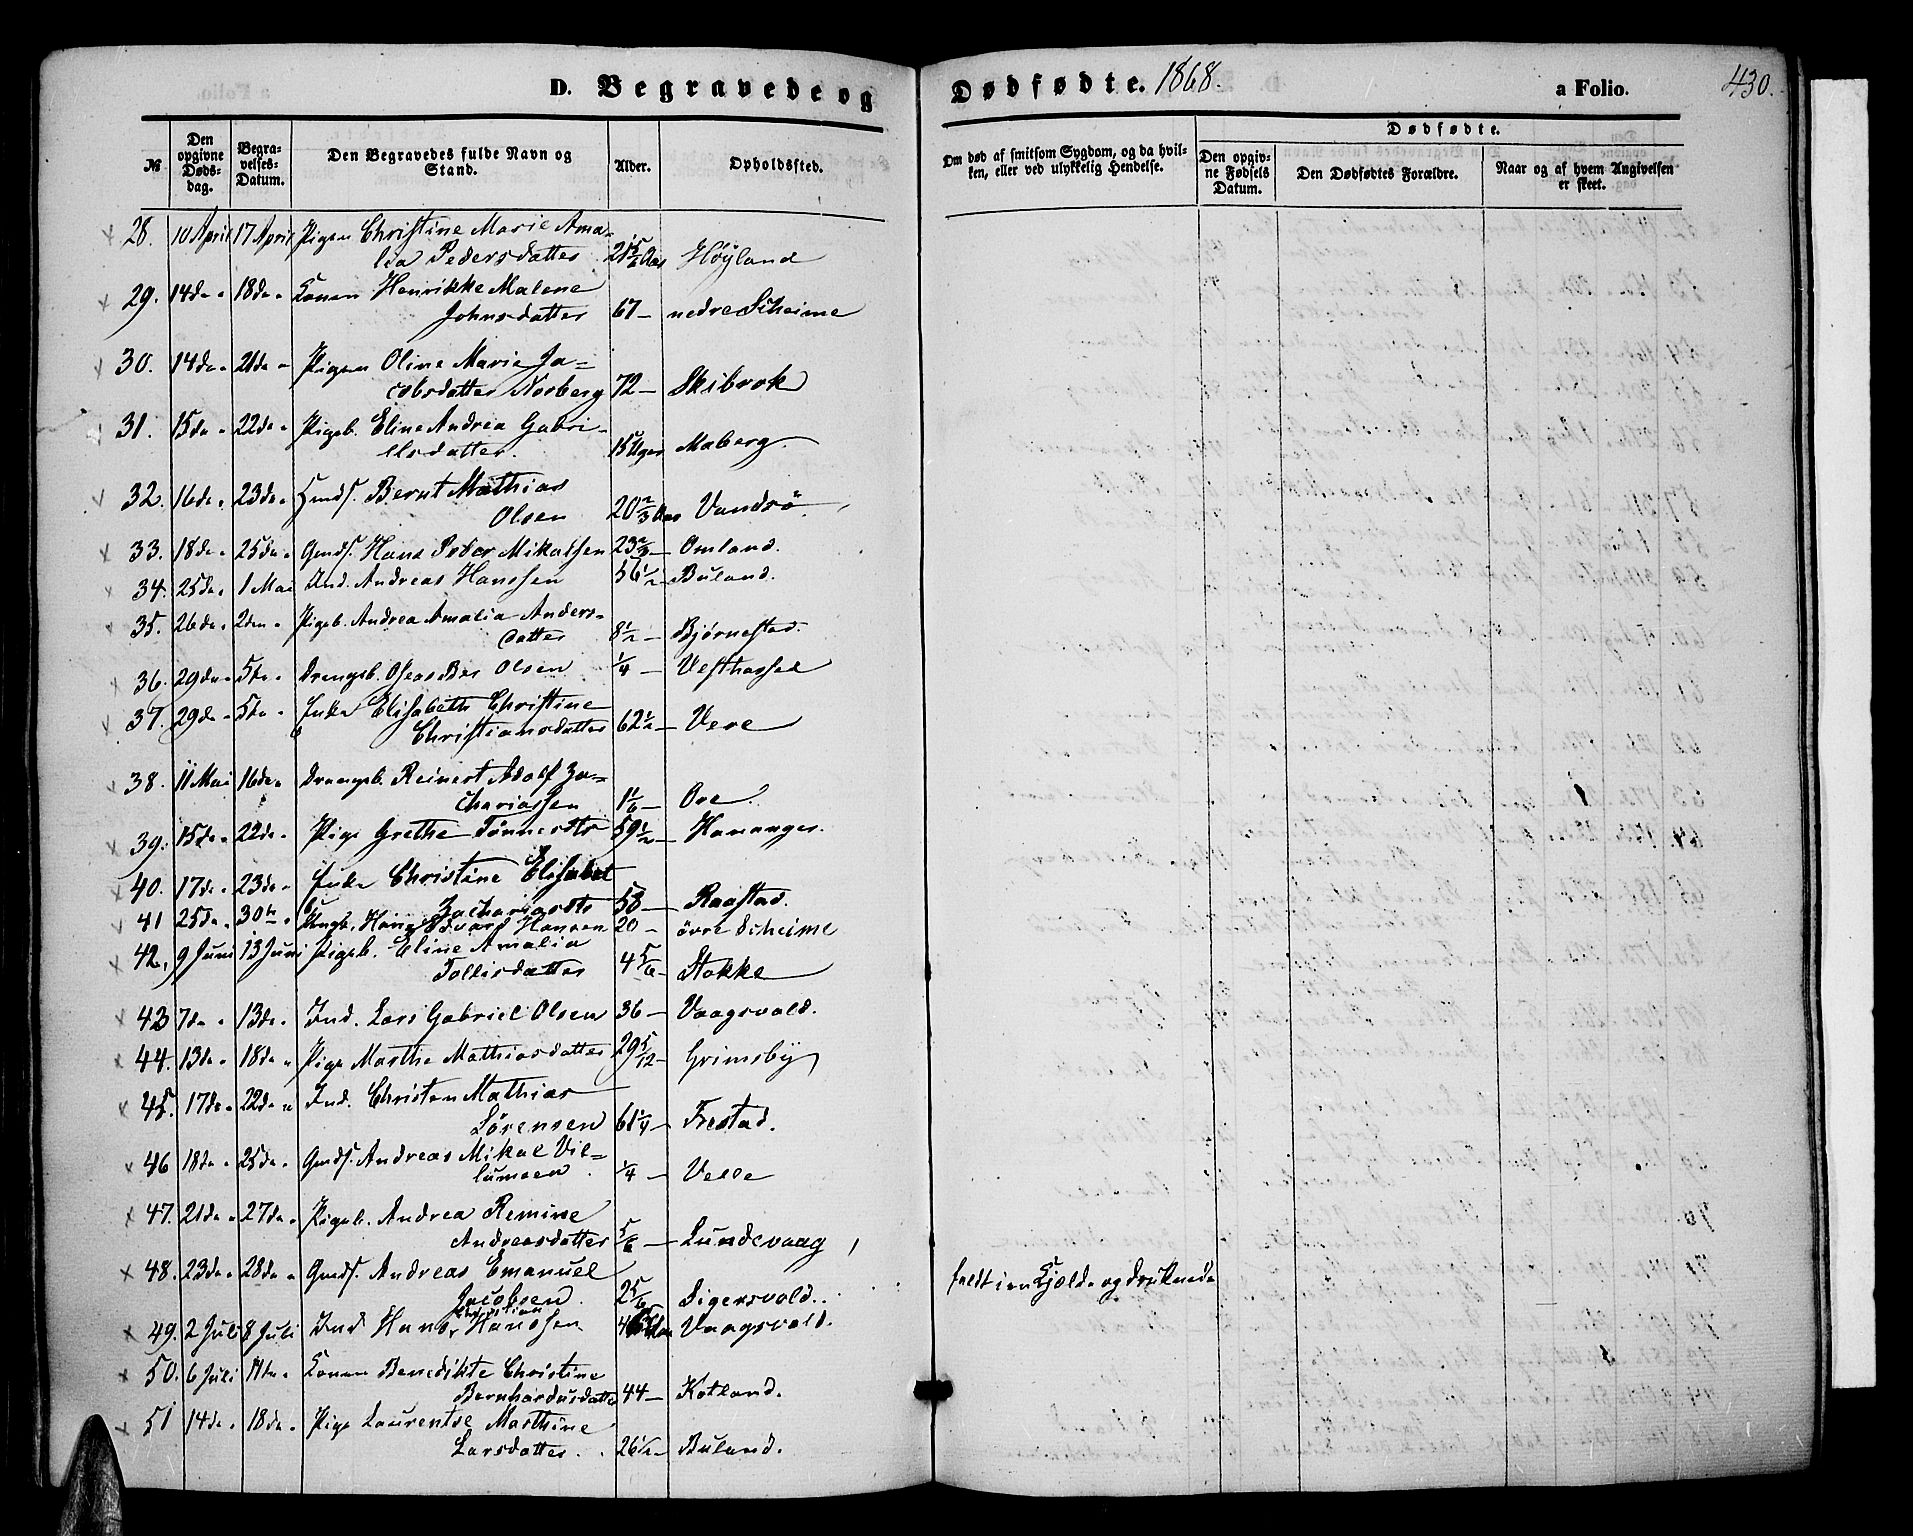 D. Begravede og Dødfødte. 1868. a Folio. 430.
№ Den opgivne Dødsdag. Begravelses-Datum. Den Begravedes fulde Navn og Stand. Alder. Opholdssted. Om død af smitsom Sygdom, og da hvilken, eller ved ulykkelig Hendelse. Dødfødte.
Den opgivne Fødsels Datum. Den Dødfødtes Forældre. Naar og af hvem Angivelsen er skeet.
28. 10 April 17 April Pigen Christine Marie Ama-
lia Pedersdatter 21 5/6 Aar Höyland
29. 14de " 18de " Konen Henrikke Malene
Johnsdatter 67 — nedre Skeime
30. 14de " 21de " Pigen Oline Marie Ja-
cobsdatter Norberg 72 — Skibrok
31. 15de " 22de " Pigeb. Eline Andrea Gabri-
elsdatter. 15 Uger Maberg.
32. 16de " 23de " Gmds. Bernt Mathias
Olsen 20 2/3 Aar Vandsö.
33. 18de " 25de " Gmds. Hans Peter Mikalsen 23 2/3 — Omland.
34. 25de " 1 Mai Ind. Andreas Hanssen 56 1/2 — Buland.
35. 26de " 2den " Pigeb. Andrea Amalia Anders-
datter 8 1/2 — Bjørnestad.
36. 29de " 5te " Drengeb. Olsen 1/4 — Vesthassel
37. 29de " 5te " Enke Elisabeth Christine
Christiansdatter 62 1/2 — Vere
38. 11 Mai 16de " Drengeb. Reinert Adolf Za-
chariassen 1 1/6 — Ore.
39. 15de " 22de " Pige Grethe Tönnesdtr 59 1/2 — Hananger.
40. 17de " 23de " Enke Christine Elisabet
Zachariasdtr 58 — Raastad.
41 25de " 30te " Ungk. Hans Edvard Hansen 20 — övre Skeime
42, 9 Juni 13 Juni Pigeb. Eline Amalia
Tollisdatter 4 5/6 — Stokke
43 7de " 13de " Ind. Lars Gabriel Olsen 36 — Vaagsvold.
44. 13de " 18de " Pige Marthe Mathiasdatter 29 5/12 — Grimsby
45. 17de " 22de " Ind. Christen Mathias
Sörensen 61 1/4 — Frestad.
46 18de " 25de " Gmds. Andreas Mikal Vil-
lumsen 1/4 — Velle
47. 21de " 27de " Pigeb. Andrea Remine
Andreasdatter 5/6 — Lundevaag
48. 23de " 28de " Gmds. Andreas Emanuel
Jacobsen. 2 5/6 — Sigersvold. faldt i en Kjelde og druknede
49. 2 Juli 8 Juli Ind Hans Christian Hanssen Aar Vaagsvold.
50. 6 Juli 11te " Konen Benedikte Christine
Bernhardusdatter 44 — Kotland.
51 14de " 18de " Pige Laurentse Marthine
Larsdatter. 26 1/2 — Buland.